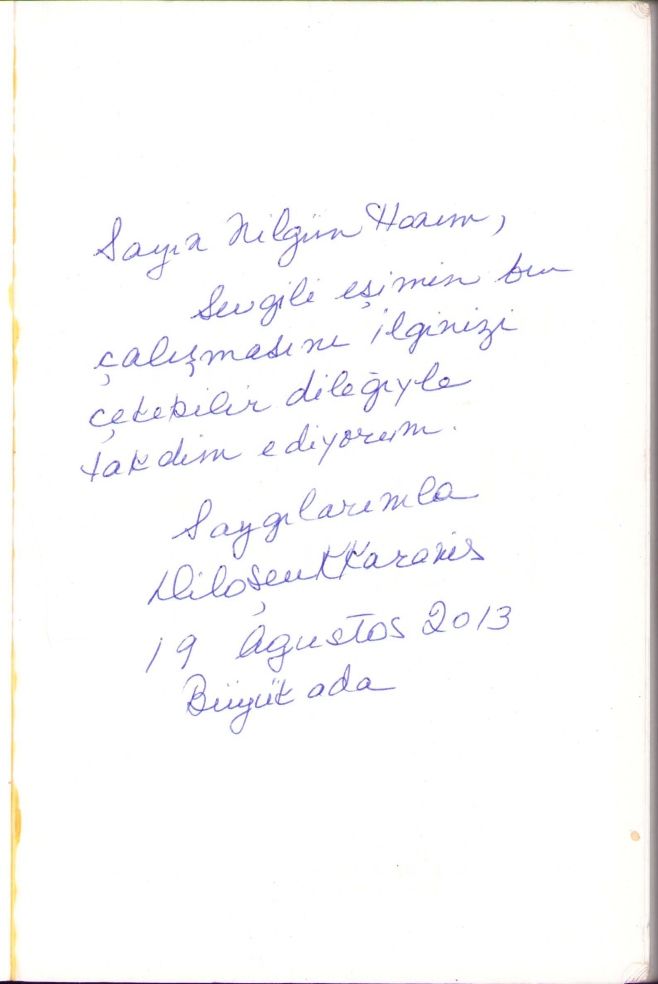 Sayın Nilgün Hanım,
Sevgili eşimin bu
çalışmasını ilginizi
çekebilir dileğiyle
takdim ediyorum.
Saygılarımla
19 Ağustos 2013
Büyük ada